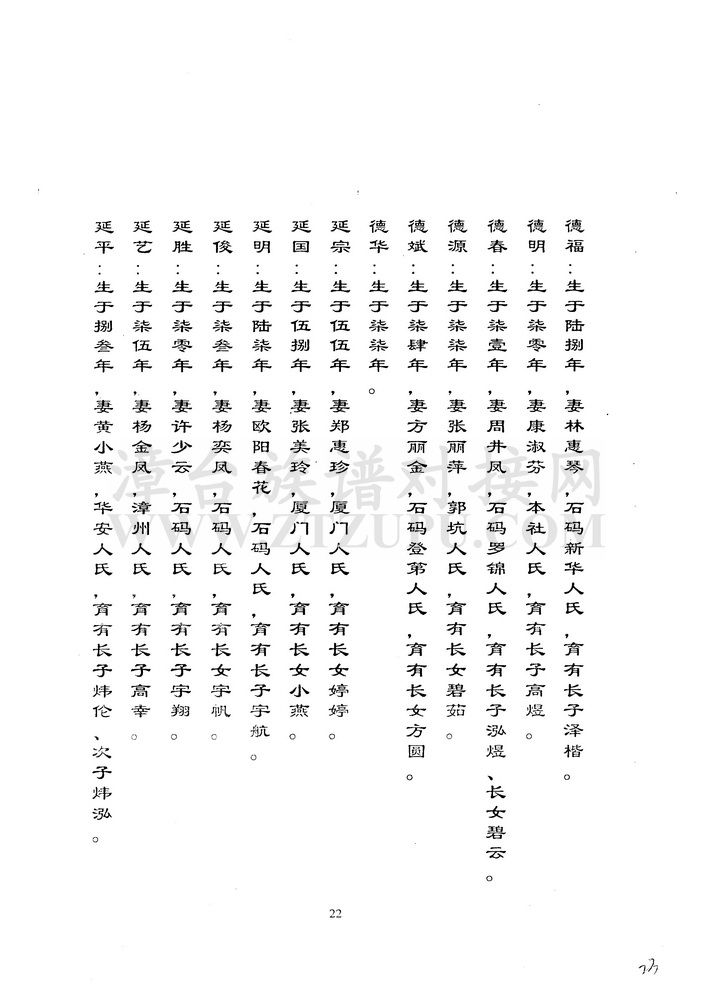 德福：生于陆捌年，妻林惠琴，石码新华人氏，育有长子泽楷。
德明：生于柒零年，妻康淑芬，本社人氏，育有长子高煜。
德春：生于柒壹年，妻周井凤，石码罗锦人氏，育有长子泓煜、长女碧云。
德源：生于柒柒年，妻张丽萍，郭坑人氏，育有长女碧茹。
德斌：生于柒肆年，妻方丽金，石码登第人氏，育有长女方圆。
德华：生于柒柒年。
延宗：生于伍伍年，妻郑惠珍，厦门人氏，育有长女婷婷。
延国：生于伍捌年，妻张美玲，厦门人氏，育有长女小燕。
延明：生于陆柒年，妻欧阳春花，石码人氏，育有长子宇航。
延俊：生于柒叁年，妻杨奕凤，石码人氏，育有长女宇帆。
延胜：生于柒零年，妻许少云，石码人氏，育有长子宇翔。
延艺：生于柒伍年，妻杨金凤，漳州人氏，育有长子高幸。
延平：生于捌叁年，妻黄小燕，华安人氏，育有长子炜伦、次子炜泓。
漳台族谱对接网
WWW.ZIZUPU.COM
22